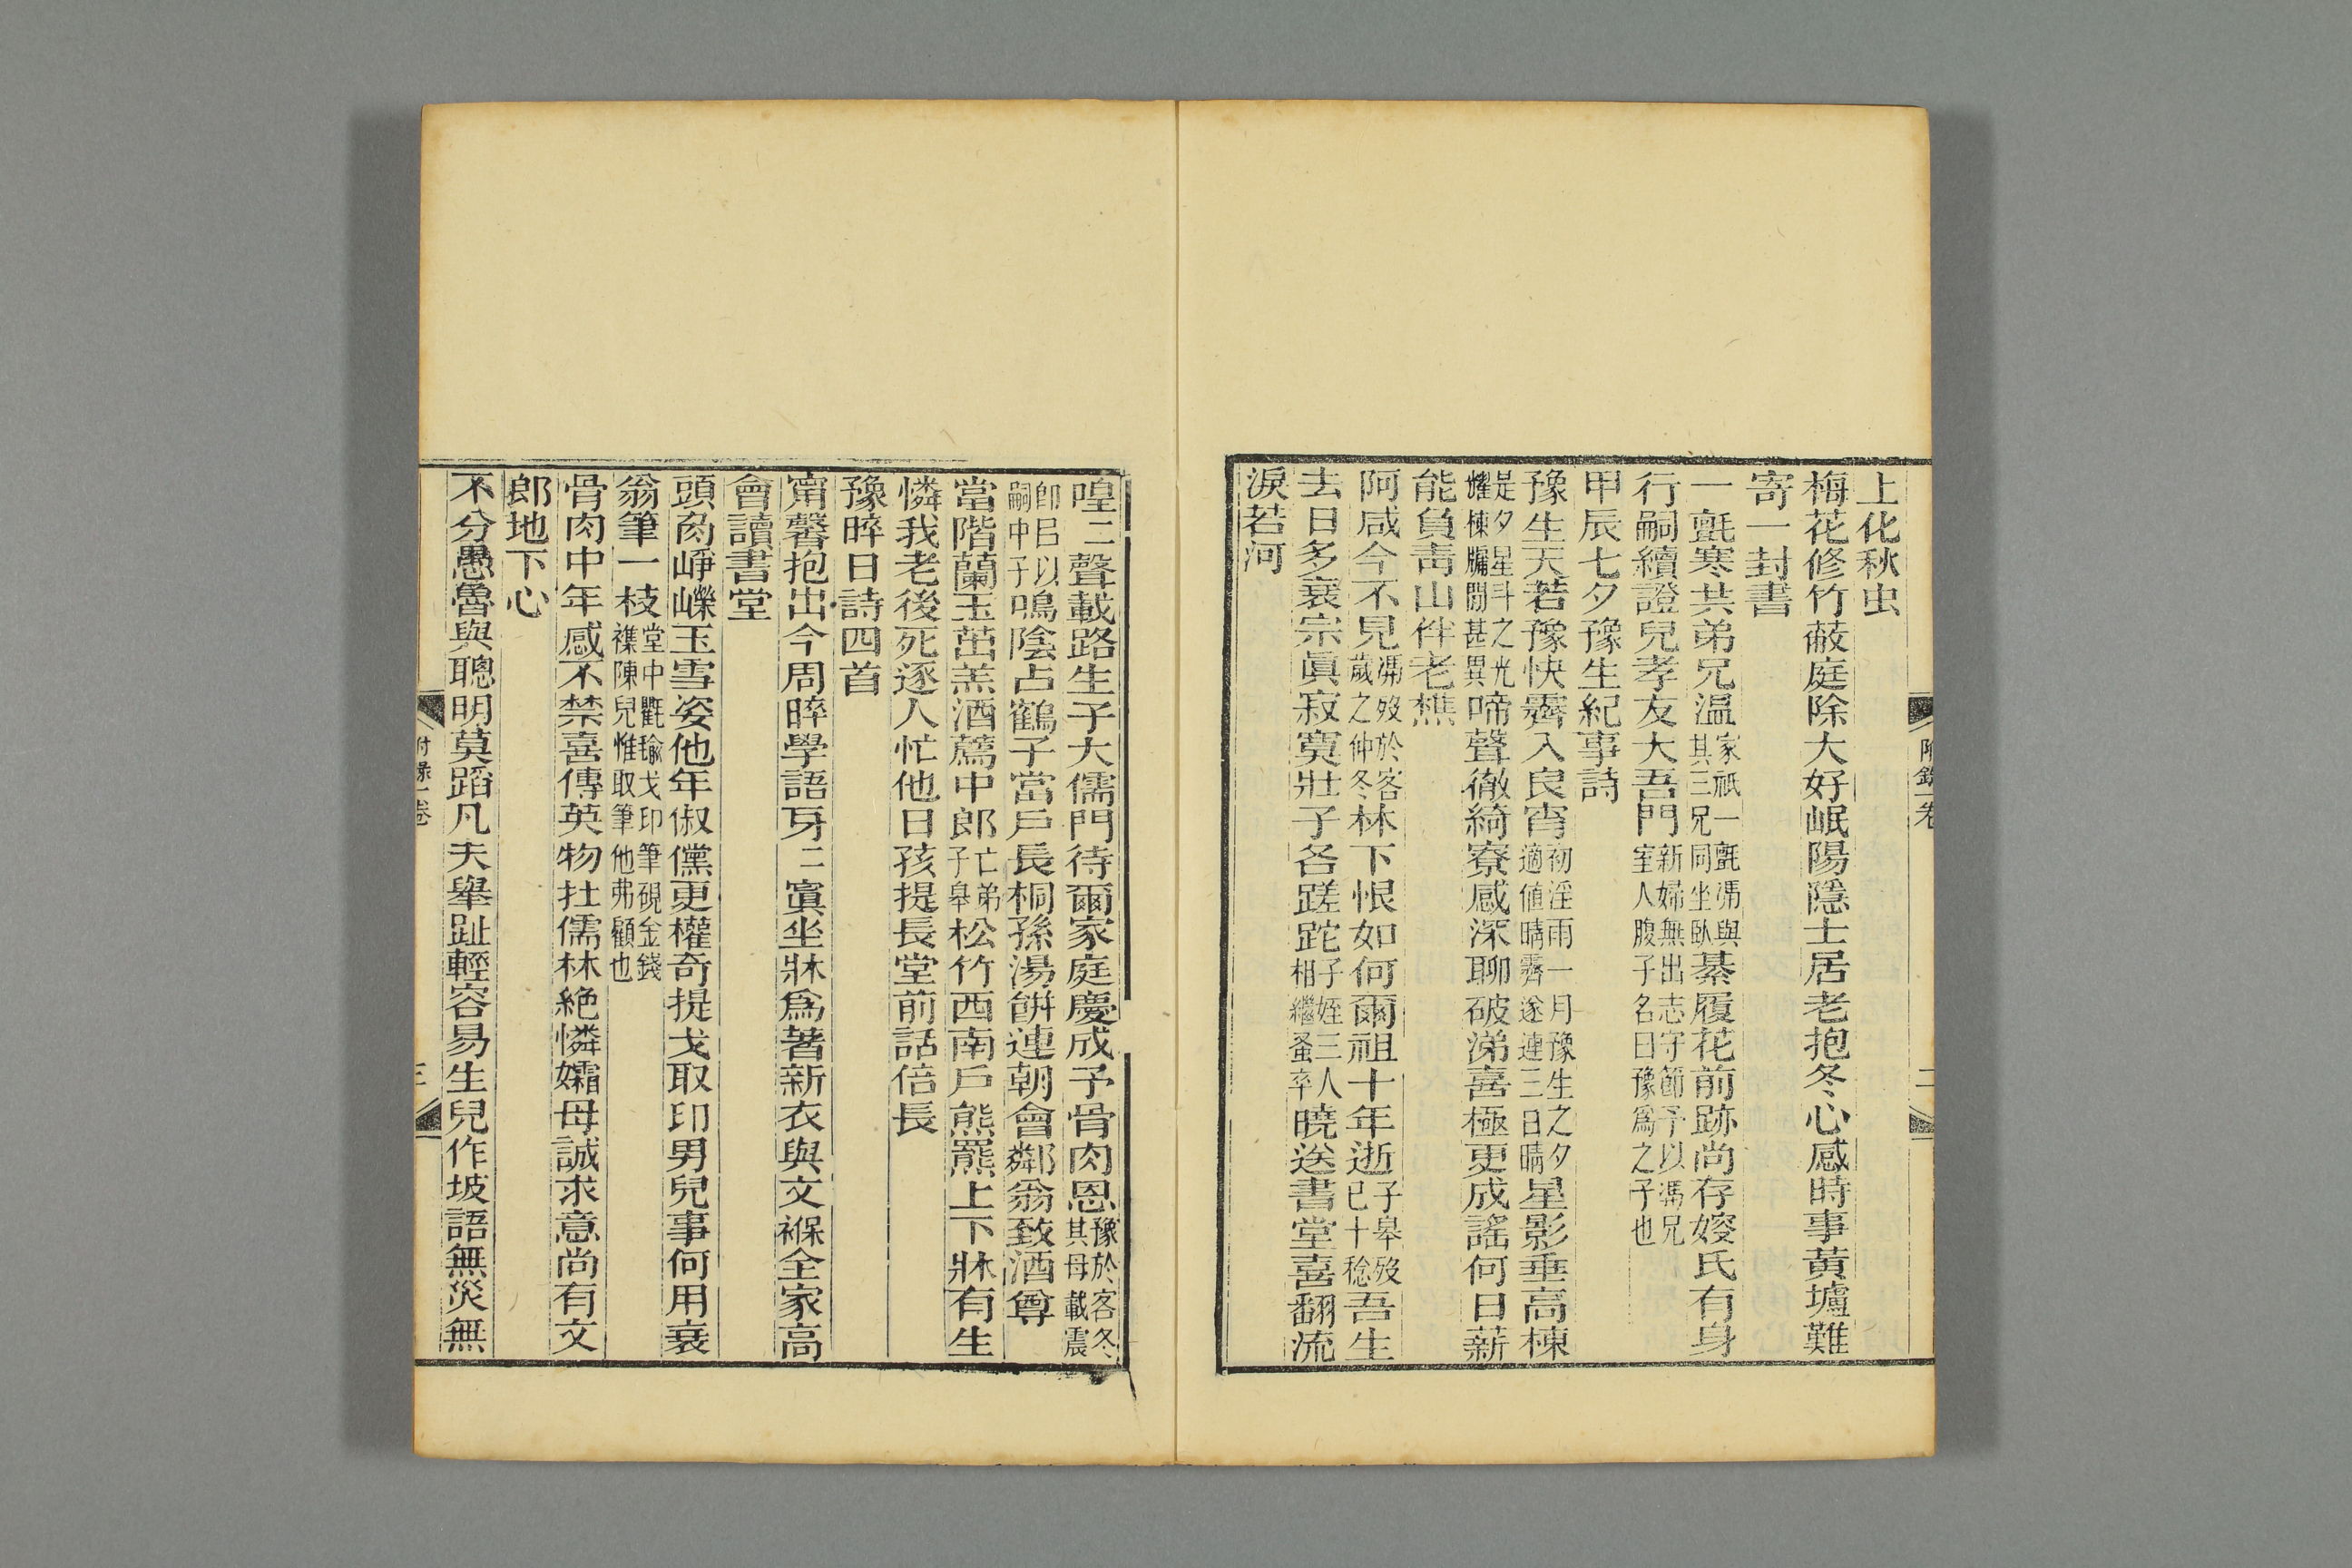 上化秋虫
梅花修竹蔽庭除大好岷陽隱士居老抱冬心感時事黄壚難
寄一封書
一氈寒共弟兄温家祇一氈馮與其三兄同坐臥綦履花前跡尚存嫂氏有身
行嗣續證兒孝友大吾門新婦無出志守節予以馮兄室人腹子名曰豫爲之子也
甲辰七夕豫生紀事詩
豫生天若豫快霽入良宵初淫雨一月豫生之夕適值晴霽遂連三日晴星影垂高棟
是夕星斗之光燿棟牖間甚異啼聲徹綺寮感深聊破涕喜極更成謠何日薪
能負靑山伴老樵
阿咸今不見馮歿於客歲之仲冬林下恨如何爾祖十年逝子皋歿已十稔吾生
去日多衰宗眞寂寞壯子各蹉跎子姪三人相繼蚤卒曉送書堂喜翻流
淚若河
附錄卷
二
喤二聲載路生子大儒門待爾家庭慶成予骨肉恩豫於客冬其母載震
卽巳以嗣中子鳴陰占鶴子當戶長桐孫湯餠連朝會鄰翁致酒尊
當階蘭玉茁羔酒薦中郎亡弟子皋松竹西南戶熊羆上下牀有生
憐我老後死逐人忙他日孩提長堂前話倍長
豫晬日詩四首
甯馨抱出今周晬學語牙二寘坐牀爲著新衣與文褓全家高
會讀書堂
頭角崢嶸玉雪姿他年俶儻更權奇提戈取印男兒事何用衰
翁筆一枝堂中氍毹戈印筆硯金錢襍陳兒惟取筆他弗顧也
骨肉中年感不禁喜傳英物拄儒林絶憐孀母誠求意尚有文
郎地下心
不分愚魯與聰明莫蹈凡夫舉趾輕容易生兒作坡語無災無
附錄卷
三